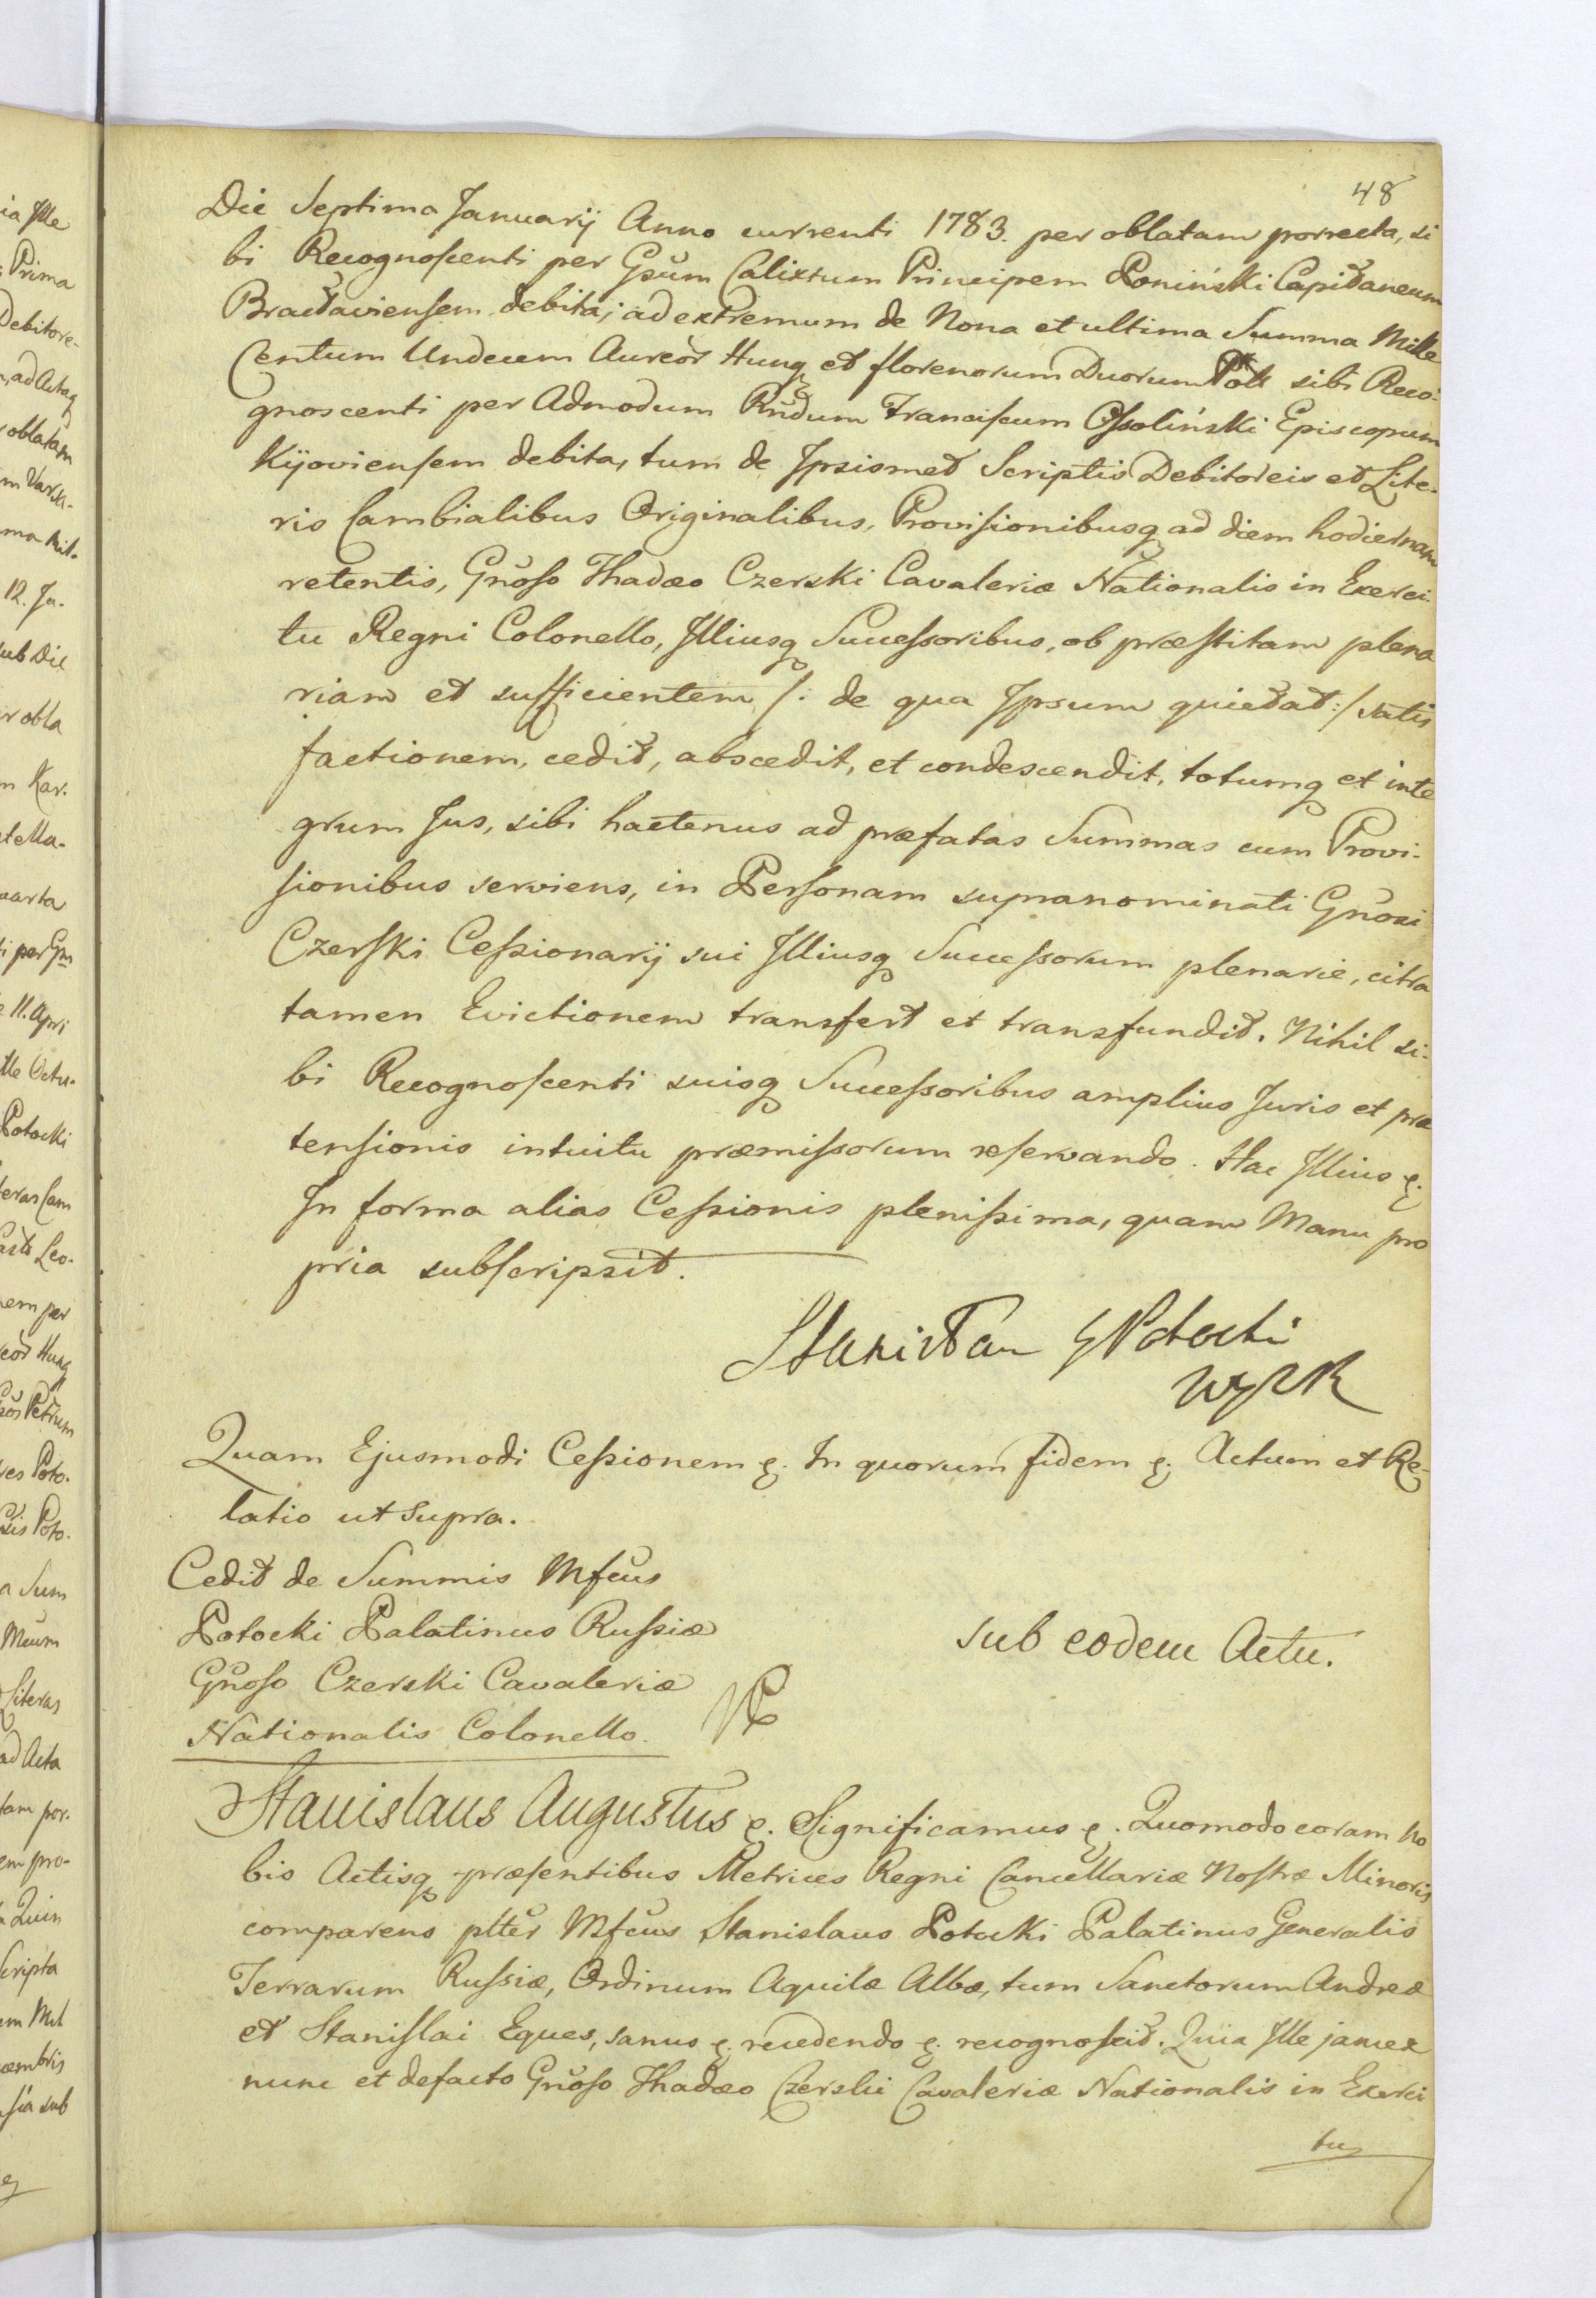 48
Die Septima Januarij Anno currenti 1783. per oblatam porrecta, si
bi Recognoscenti per Gsum Calixtum Principem Poniński Capitaneum
Bractaviensem debita; ad extremum de Nona et ultima Summa Mille
Centum Undecem Aureor Hungq et florenorum Duorum Poll sibi Reco-
gnoscenti per Admodum Rndum Franciscum Ossoliński Episcopum
Kijoviensem debita, tum de Ipsismet Scriptis Debitoreis et Lite-
ris Cambialibus Originalibus, Provisionibusq ad diem hodiernam
retentis, Gnoso Thadæo Czerski Cavaleriæ Nationalis in Exerci-
tu Regni Colonello, Illiusq Successoribus, ob præstitam plena
riam et sufficientem /: de qua Ipsum quietat :/ satis
factionem, cedit, abscedit, et condescendit, totumq et inte
grum Jus, sibi hactenus ad præfatas Summas cum Provi-
sionibus serviens, in Personam supranominati Gnosi
Czerski Cessionarij sui Illiusq Successorum plenarie, citra
tamen Evictionem transfert et transfundit. Nihil si-
bi Recognoscenti suisq Successoribus amplius Juris et præ
tensionis intuitu præmissorum reservando. Hac Illius ę.
In forma alias Cessionis plenissima, quam Manu pro
pria subscripsit.
Stanisław Potocki
WR
Quam Ejusmodi Cessionem ę. In quorum fidem ę. Actum et Re-
latio ut Supra.
Cedit de Summis Mfcus
Potocki Palatinus Russiæ
Gnoso Czerski Cavaleriæ
Nationalis Colonello.
Sub eodem Actu.
Stanislaus Augustus ę. Significamus ę. Quomodo coram No
bis Actisq præsentibus Metrices Regni Cancellariæ Nostræ Minoris
comparens pltter Mfcus Stanislaus Potocki Palatinus Generalis
Terrarum Russiæ, Ordinum Aquilæ Albæ, tum Sanctorum Andreæ
et Stanislai Eques, sanus ę. recedendo ę. recognoscit. Quia Ille jam ex
nunc et defacto Gnoso Thadæo Czerski Cavaleriæ Nationalis in Exerci
tu